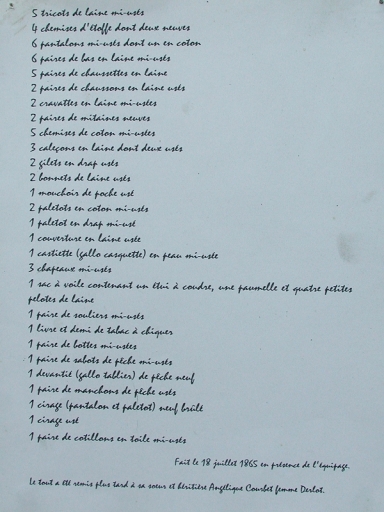 5 tricots de laine mi-usés
4 chemises d'étoffe dont deux neuves
6 pantalons mi-usés dont un en coton
6 paires de bas en laine mi-usés
5 paires de chaussettes en laine
2 paires de chaussons en laine usés
2 cravattes en laine mi-usées
2 paires de mitaines neuves
5 chemises de coton mi-usées
3 caleçons en laine dont deux usés
2 gilets en drap usés
2 bonnets de laine usés
1 mouchoir de poche usé
2 paletots en coton mi-usés
1 paletot en drap mi-usé
1 couverture en laine usée
1 castiette (gallo casquette) en peau mi-usée
3 chapeaux mi-usés
1 sac à voile contenant un étui à coudre, une paumelle et quatre petites
pelotes de laine
1 paire de souliers mi-usés
1 livre et demi de tabac à chiquer
1 paire de bottes mi-usées
1 paire de sabots de pêche mi-usés
1 devantié (gallo tablier) de pêche neuf
1 paire de manchons de pêche usés
1 cirage (pantalon et paletot) neuf brûlé
1 cirage usé
1 paire de cotillons en toile mi-usés
Fait le 18 juillet 1865 en présence de l'équipage.
Le tout a été remis plus tard à sa soeur et héritière Angélique Courbet femme Derlot.